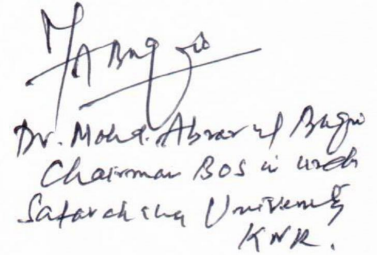 Dr. Mohd. Abrar ul Baqi
Chairman BOS in Urdu
Satavahana University
KNR.